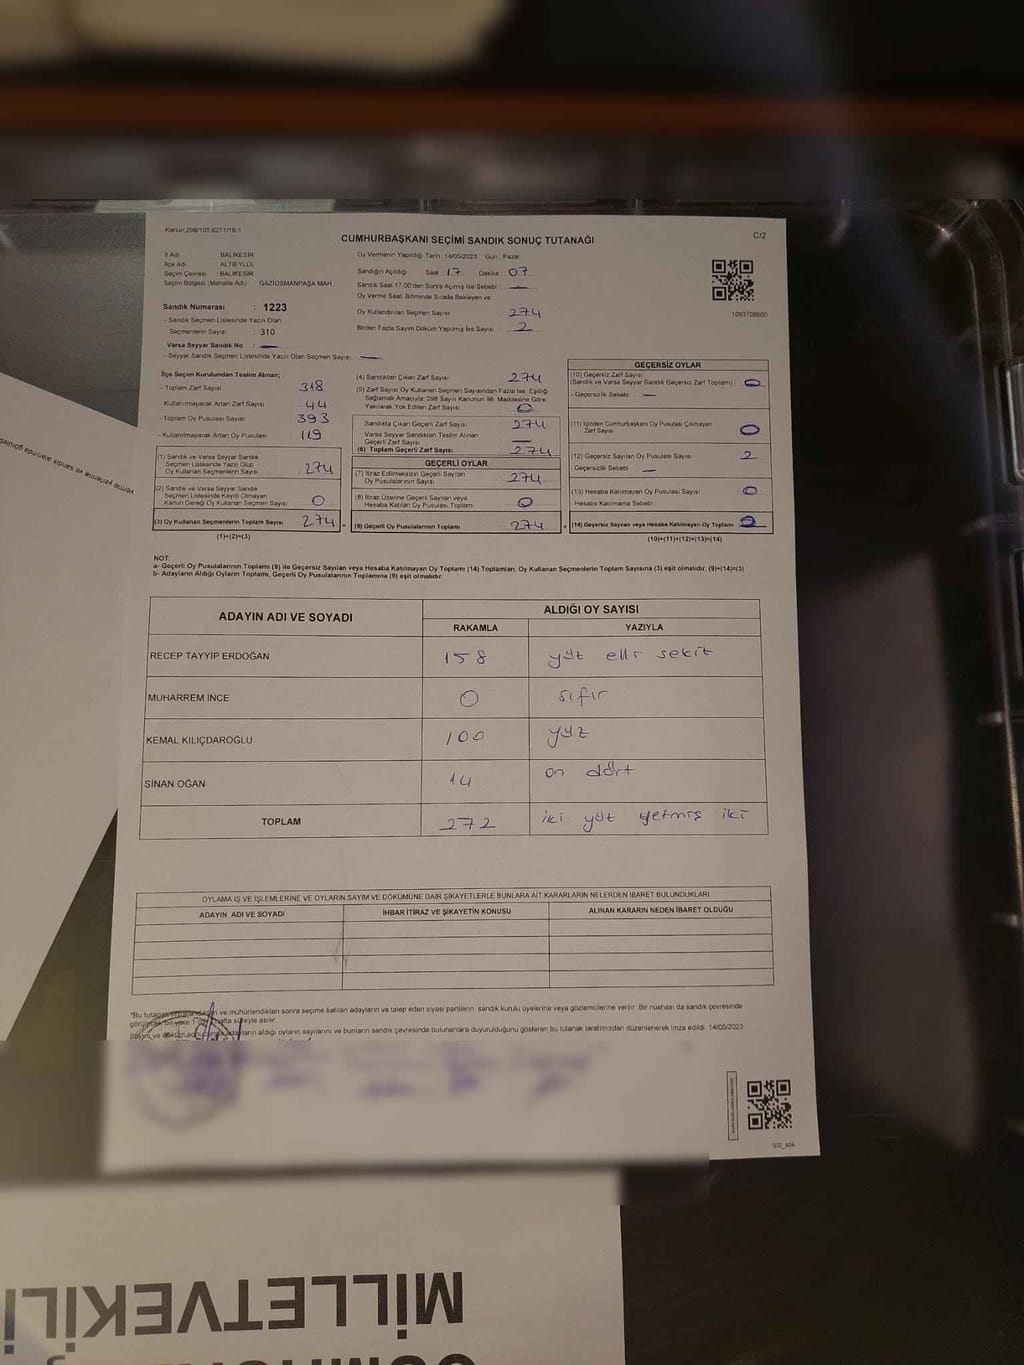 Kanun 298/105,6271/18-1
C/2
CUMHURBAŞKANI SEÇİMİ SANDIK SONUÇ TUTANAĞI
İl Adı : BALIKESİR
İlçe Adı : ALTIEYLÜL
Seçim Çevresi : BALIKESİR
Seçim Bölgesi (Mahalle Adı) : GAZİOSMANPAŞA MAH
Sandık Numarası : 1223
- Sandık Seçmen Listesinde Yazılı Olan
Seçmenlerin Sayısı : 310
Varsa Seyyar Sandık No : —
- Seyyar Sandık Seçmen Listesinde Yazılı Olan Seçmen Sayısı : —
Oy Vermenin Yapıldığı Tarih : 14/05/2023 Gün : Pazar
Sandığın Açıldığı Saat : 17 Dakika : 07
Sandık Saat 17.00'den Sonra Açımış İse Sebebi : —
Oy Verme Saati Bitiminde Sırada Bekleyen ve
Oy Kullandırılan Seçmen Sayısı : 274
Birden Fazla Sayım Döküm Yapılmış İse Sayısı : 2
1093708600
İlçe Seçim Kurulundan Teslim Alınan;
- Toplam Zarf Sayısı : 318
- Kullanılmayarak Artan Zarf Sayısı : 44
- Toplam Oy Pusulası Sayısı : 393
- Kullanılmayarak Artan Oy Pusulası : 119
(1) Sandık ve Varsa Seyyar Sandık
Seçmen Listesinde Yazılı Olup
Oy Kullanan Seçmenlerin Sayısı : 274
(2) Sandık ve Varsa Seyyar Sandık
Seçmen Listesinde Kayıtlı Olmayan
Kanun Gereği Oy Kullanan Seçmen Sayısı : 0
(3) Oy Kullanan Seçmenlerin Toplam Sayısı : 274 =
(1)+(2)=(3)
(4) Sandıktan Çıkan Zarf Sayısı : 274
(5) Zarf Sayısı Oy Kullanan Seçmen Sayısından Fazla İse, Eşitliği
Sağlamak Amacıyla; 298 Sayılı Kanunun 98. Maddesine Göre
Yakılarak Yok Edilen Zarf Sayısı : 0
Sandıkta Çıkan Geçerli Zarf Sayısı : 274
Varsa Seyyar Sandıktan Teslim Alınan
Geçerli Zarf Sayısı : —
(6) Toplam Geçerli Zarf Sayısı : 274
GEÇERLİ OYLAR
(7) İtiraz Edilmeksizin Geçerli Sayılan
Oy Pusulalarının Sayısı : 274
(8) İtiraz Üzerine Geçerli Sayılan veya
Hesaba Katılan Oy Pusulası Toplamı : 0
(9) Geçerli Oy Pusulalarının Toplamı : 274 +
GEÇERSİZ OYLAR
(10) Geçersiz Zarf Sayısı
(Sandık ve Varsa Seyyar Sandık Geçersiz Zarf Toplamı) : 0
- Geçersizlik Sebebi : —
(11) İçinden Cumhurbaşkanı Oy Pusulası Çıkmayan
Zarf Sayısı : 0
(12) Geçersiz Sayılan Oy Pusulası Sayısı : 2
- Geçersizlik Sebebi : —
(13) Hesaba Katılmayan Oy Pusulası Sayısı : 0
- Hesaba Katılmama Sebebi :
(14) Geçersiz Sayılan veya Hesaba Katılmayan Oy Toplamı :
(10)+(11)+(12)+(13)=(14)
NOT:
a- Geçerli Oy Pusulalarının Toplamı (9) ile Geçersiz Sayılan veya Hesaba Katılmayan Oy Toplamı (14) Toplamları, Oy Kullanan Seçmenlerin Toplam Sayısına (3) eşit olmalıdır. (9)+(14)=(3)
b- Adayların Aldığı Oyların Toplamı, Geçerli Oy Pusulalarının Toplamına (9) eşit olmalıdır.
ADAYIN ADI VE SOYADI ALDIĞI OY SAYISI
RAKAMLA YAZIYLA
RECEP TAYYİP ERDOĞAN 158 yüz elli sekiz
MUHARREM İNCE 0 sıfır
KEMAL KILIÇDAROĞLU 100 yüz
SİNAN OĞAN 14 on dört
TOPLAM 272 iki yüz yetmiş iki
OYLAMA İŞ VE İŞLEMLERİNE VE OYLARIN SAYIM VE DÖKÜMÜNE DAİR ŞİKAYETLERLE BUNLARA AİT KARARLARIN NELERDEN İBARET BULUNDUKLARI
ADAYIN ADI VE SOYADI İHBAR İTİRAZ VE ŞİKAYETİN KONUSU ALINAN KARARIN NEDEN İBARET OLDUĞU
"Bu tutanak ve mühürlendikten sonra seçime katılan adayların ve talep eden siyasi partilerin sandık kurulu üyelerine veya gözlemcilerine verilir. Bir nüshası da sandık çevresinde
hafta süreyle asılır.
aldığı oyların sayılarını ve bunların sandık çevresinde bulunanlara duyurulduğunu gösteren bu tutanak tarafımızdan düzenlenerek imza edildi. 14/05/2023
MİLLETVEKİLİ